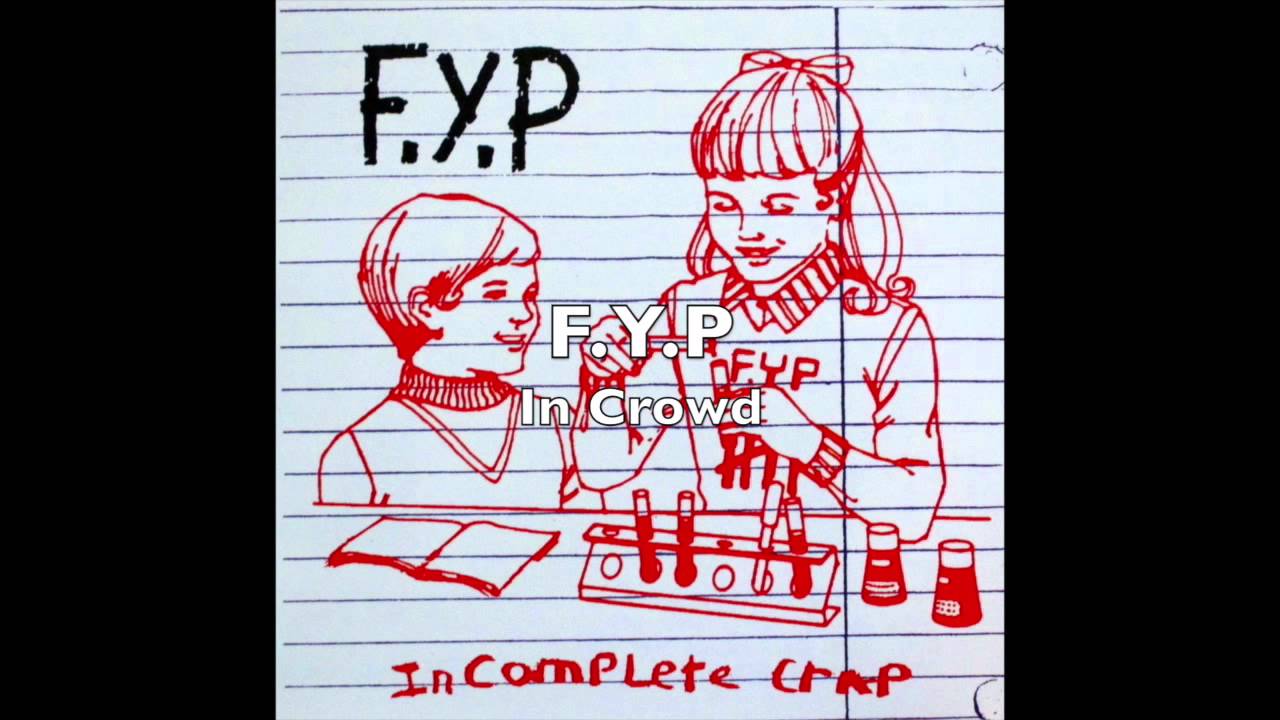 F.Y.P
F.Y.P
In Crowd
F.Y.P
InComPLete CrAP